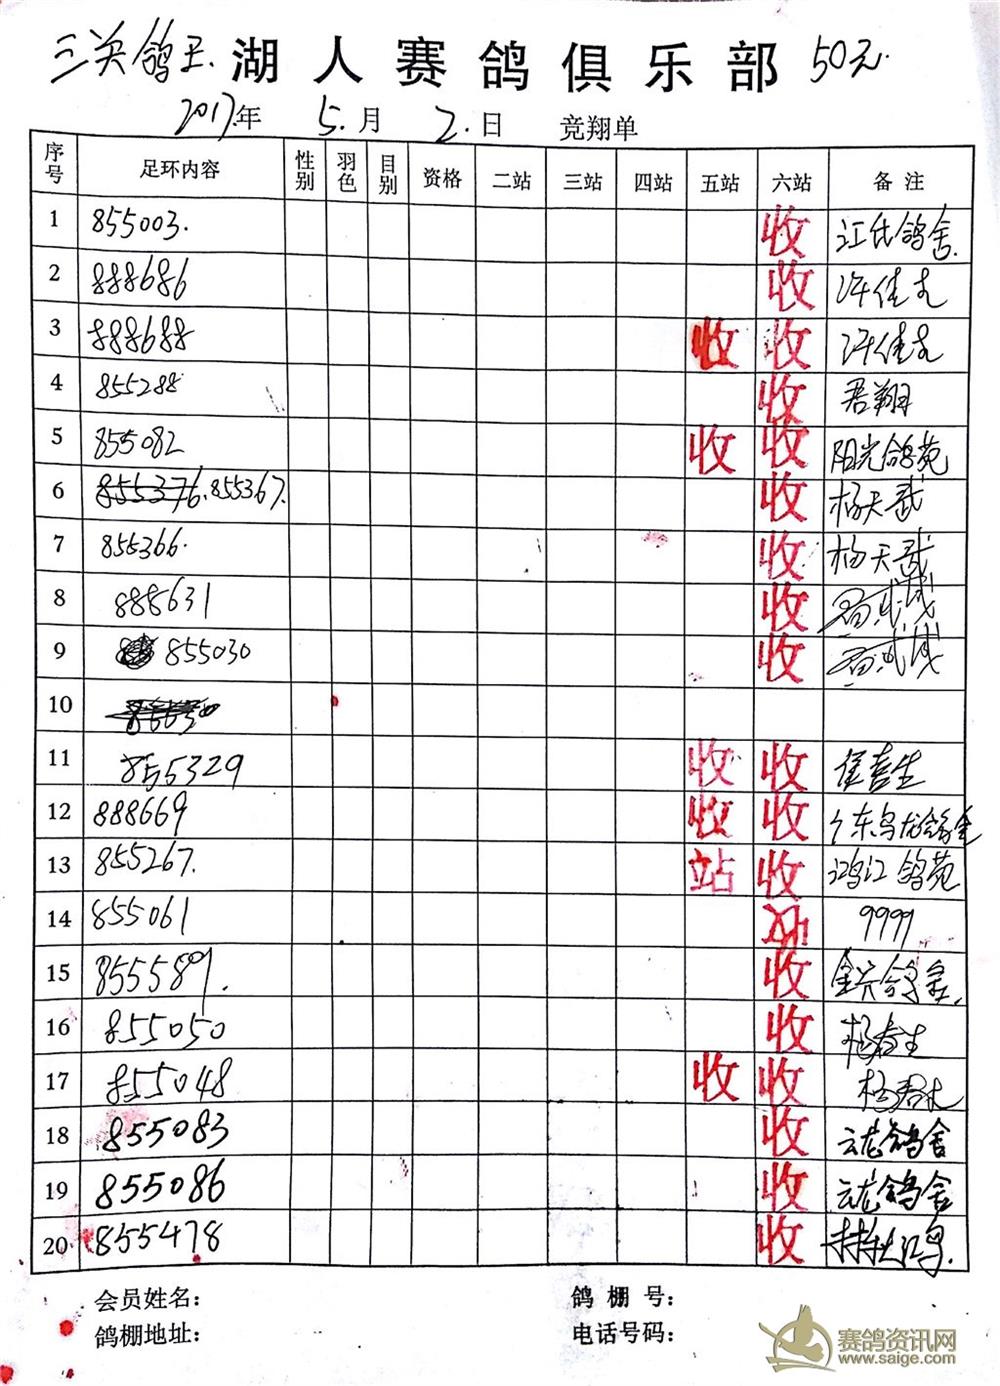 三关鸽王. 湖人赛鸽俱乐部 50元.
2017年 5.月 2.日 竞翔单
序号 足环内容 性别 羽色 目别 资格 二站 三站 四站 五站 六站 备 注
1 855003. 收 江氏鸽舍.
2 888686 收 许佳文
3 888688 收 收 许佳文
4 855288 收 君翔
5 855082 收 收 阳光鸽苑
6 855376. 855367. 收 杨天武
7 855366. 收 杨天武
8 888631 收
9 855030 收
10
11 855329 收 收 生
12 888669 收 收 广东乌龙鸽舍
13 855267. 站 收 鸿江鸽苑
14 855061 9999
15 855589. 收
16 855050 收 杨春生
17 855048 收 收 杨
18 855083 收 云龙鸽舍
19 855086 收 云龙鸽舍
20 855478 收
会员姓名： 鸽 棚 号：
鸽棚地址： 电话号码：
赛鸽资讯网
www.saige.com